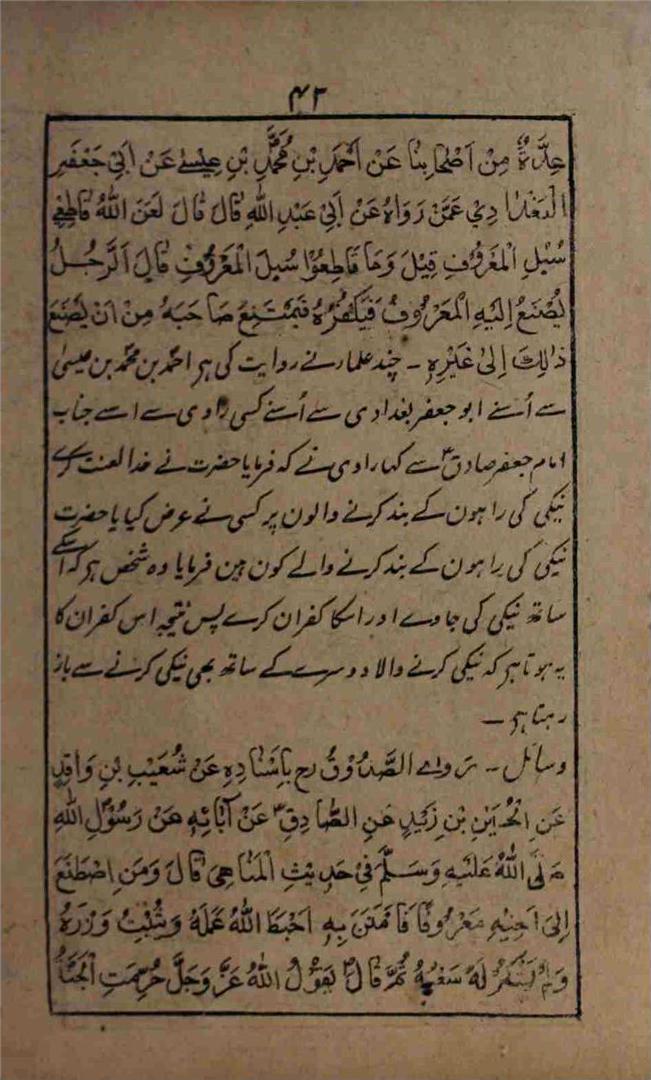 ۴۲
عِدَّةٌ مِنْ اَصْحَابِنَا عَنْ اَحْمَدَ بْنِ مُحَمَّدِ بْنِ عِيْسٰى عَنْ اَبِيْ جَعْفَرِ
الْبَغْدَادِيِ عَمَّنْ رَوَاهُ عَنْ اَبِيْ عَبْدِ اللّٰهِ قَالَ قَالَ لَعَنَ اللّٰهُ قَاطِعِيْ
سُبُلِ الْمَعْرُوْفِ قِيْلَ وَمَا قَاطِعُوْا سُبُلِ الْمَعْرُوْفِ قَالَ اَلرَّجُلُ
يُصْنَعُ اِلَيْهِ الْمَعْرُوْفُ فَيَكْفُرُهُ فَيَمْتَنِعُ صَاحِبُهُ مِنْ اَنْ يَصْنَعَ
ذَالِكَ اِلٰى غَيْرِهٖ ۔ چند علمار نے روایت کی ہر احمد بن محمد بن عیسیٰ
سے اُسنے ابو جعفر بغدادی سے اُسنے کسی راوی سے اسے جناب
امام جعفر صادقؑ سے کہا راوی نے کہ فرمایا حضرت نے خدا لعنت کرے
نیکی کی راہون کے بند کرنے والون پر کسی نے عرض کیا یا حضرت
نیکی کی راہون کے بند کرنے والے کون ہین فرمایا وہ شخص ہر کہ اسکے
ساتھ نیکی کی جاوے اور اسکا کفران کرے پس نتیجہ اس کفران کا
یہ ہوتا ہر کہ نیکی کرنے والا دوسرے کے ساتھ بھی نیکی کرنے سے باز
رہتا ہر ۔
وسائل ۔ رَوَى الصَّدُوْقُ رح بِاِسْنَادِهٖ عَنْ شُعَيْبِ بْنِ وَاقِدٍ
عَنِ الْحُسَيْنِ بْنِ زَيْدٍ عَنِ الصَّادِقِؑ عَنْ آبَائِهٖ عَنْ رَسُوْلِ اللّٰهِ
صَلَّى اللّٰهُ عَلَيْهِ وَسَلَّمَ فِيْ حَدِيْثِ الْمَنَاهِىْ قَالَ وَمَنِ اصْطَنَعَ
اِلٰى اَخِيْهِ مَعْرُوْفًا فَامْتَنَّ بِهٖ اَحْبَطَ اللّٰهُ عَمَلَهُ وَثَبَتَ وِزْرَهُ
وَلَمْ يَشْكُرْ لَهُ سَعْيَهُ ثُمَّ قَالَ يَقُوْلُ اللّٰهُ عَزَّ وَجَلَّ حُرِّمَتِ الْجَنَّةُ